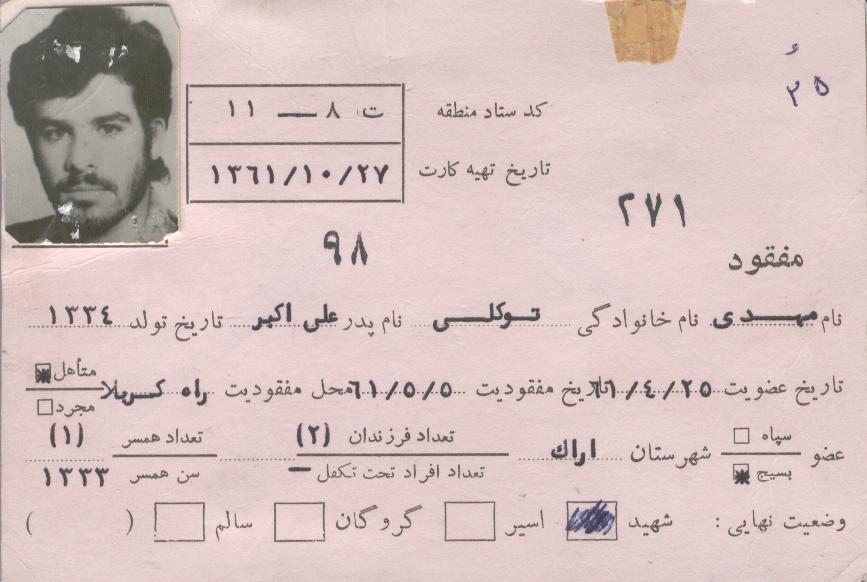 ء
۳۵
کد ستاد منطقه ت ۸ — ۱۱
تاریخ تهیه کارت ۱۳۶۱/۱۰/۲۷
۲۷۱
۹۸
مفقود
نام مهدی نام خانوادگی توکلی نام پدر علی اکبر تاریخ تولد ۱۳۳۴
تاریخ عضویت ۶۱/۴/۲۵ تاریخ مفقودیت ۶۱/۵/۵ محل مفقودیت راه کربلا متأهل
مجرد
عضو سپاه شهرستان اراك تعداد فرزندان (۲) تعداد همسر (۱)
بسیج تعداد افراد تحت تکفل — سن همسر ۱۳۳۳
وضعیت نهایی : شهید اسیر گروگان سالم ( )